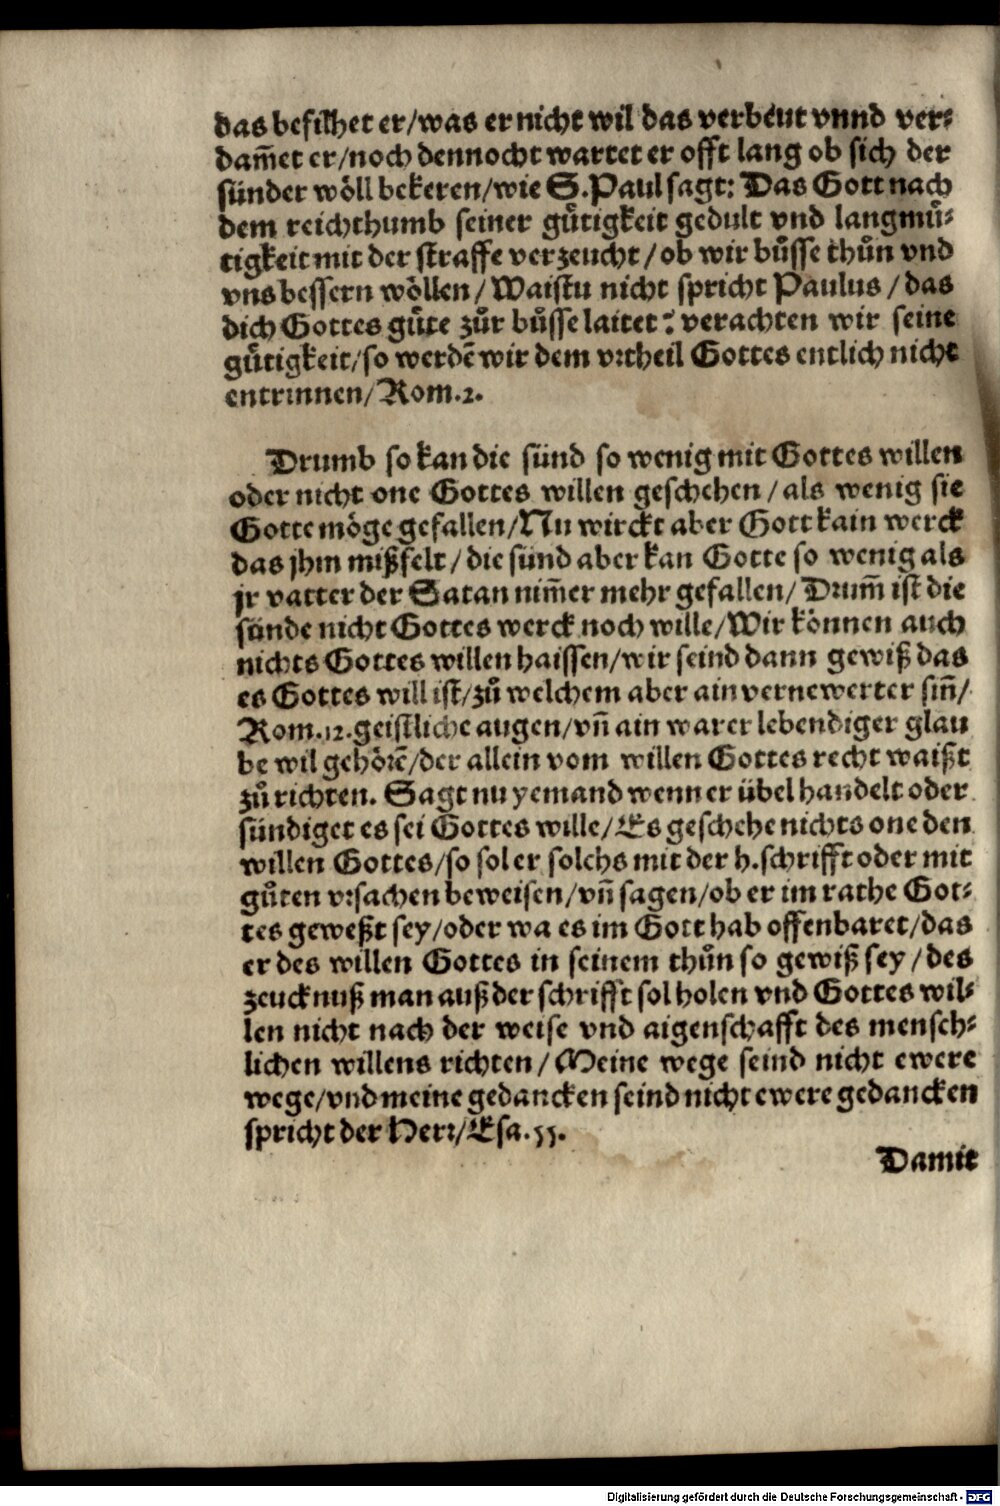 das befilhet er/was er nicht wil das verbeut vnnd ver⸗
dam̄et er/noch dennocht wartet er offt lang ob sich der
sünder wöll bekeren/wie S.Paul sagt: Das Gott nach
dem reichthumb seiner gütigkeit gedult vnd langmü⸗
tigkeit mit der straffe verzeucht/ob wir bůsse thůn vnd
vns bessern wöllen/Waistu nicht spricht Paulus/das
dich Gottes güte zůr bůsse laitet: verachten wir seine
gütigkeit/so werdē wir dem vrtheil Gottes entlich nicht
entrinnen/Rom.2.
Drumb so kan die sünd so wenig mit Gottes willen
oder nicht one Gottes willen geschehen/als wenig sie
Gotte möge gefallen/Nu wirckt aber Gott kain werck
das jhm mißfelt/die sünd aber kan Gotte so wenig als
jr vatter der Satan nim̄er mehr gefallen/Drum̄ ist die
sünde nicht Gottes werck noch wille/Wir können auch
nichts Gottes willen haissen/wir seind dann gewiß das
es Gottes will ist/zů welchem aber ain vernewerter sin̄/
Rom.12.geistliche augen/vn̄ ain warer lebendiger glau
be wil gehörē/der allein vom willen Gottes recht waißt
zů richten. Sagt nu yemand wenn er übel handelt oder
sündiget es sei Gottes wille/Es geschehe nichts one den
willen Gottes/so sol er solchs mit der h.schrifft oder mit
gůten vrsachen beweisen/vn̄ sagen/ob er im rathe Got⸗
tes geweßt sey/oder wa es im Gott hab offenbaret/das
er des willen Gottes in seinem thůn so gewiß sey/des
zeucknuß man auß der schrifft sol holen vnd Gottes wil⸗
len nicht nach der weise vnd aigenschafft des mensch⸗
lichen willens richten/Meine wege seind nicht ewere
wege/vnd meine gedancken seind nicht ewere gedancken
spricht der Herr/Esa.55.
Damit
Digitalisierung gefördert durch die Deutsche Forschungsgemeinschaft - DFG